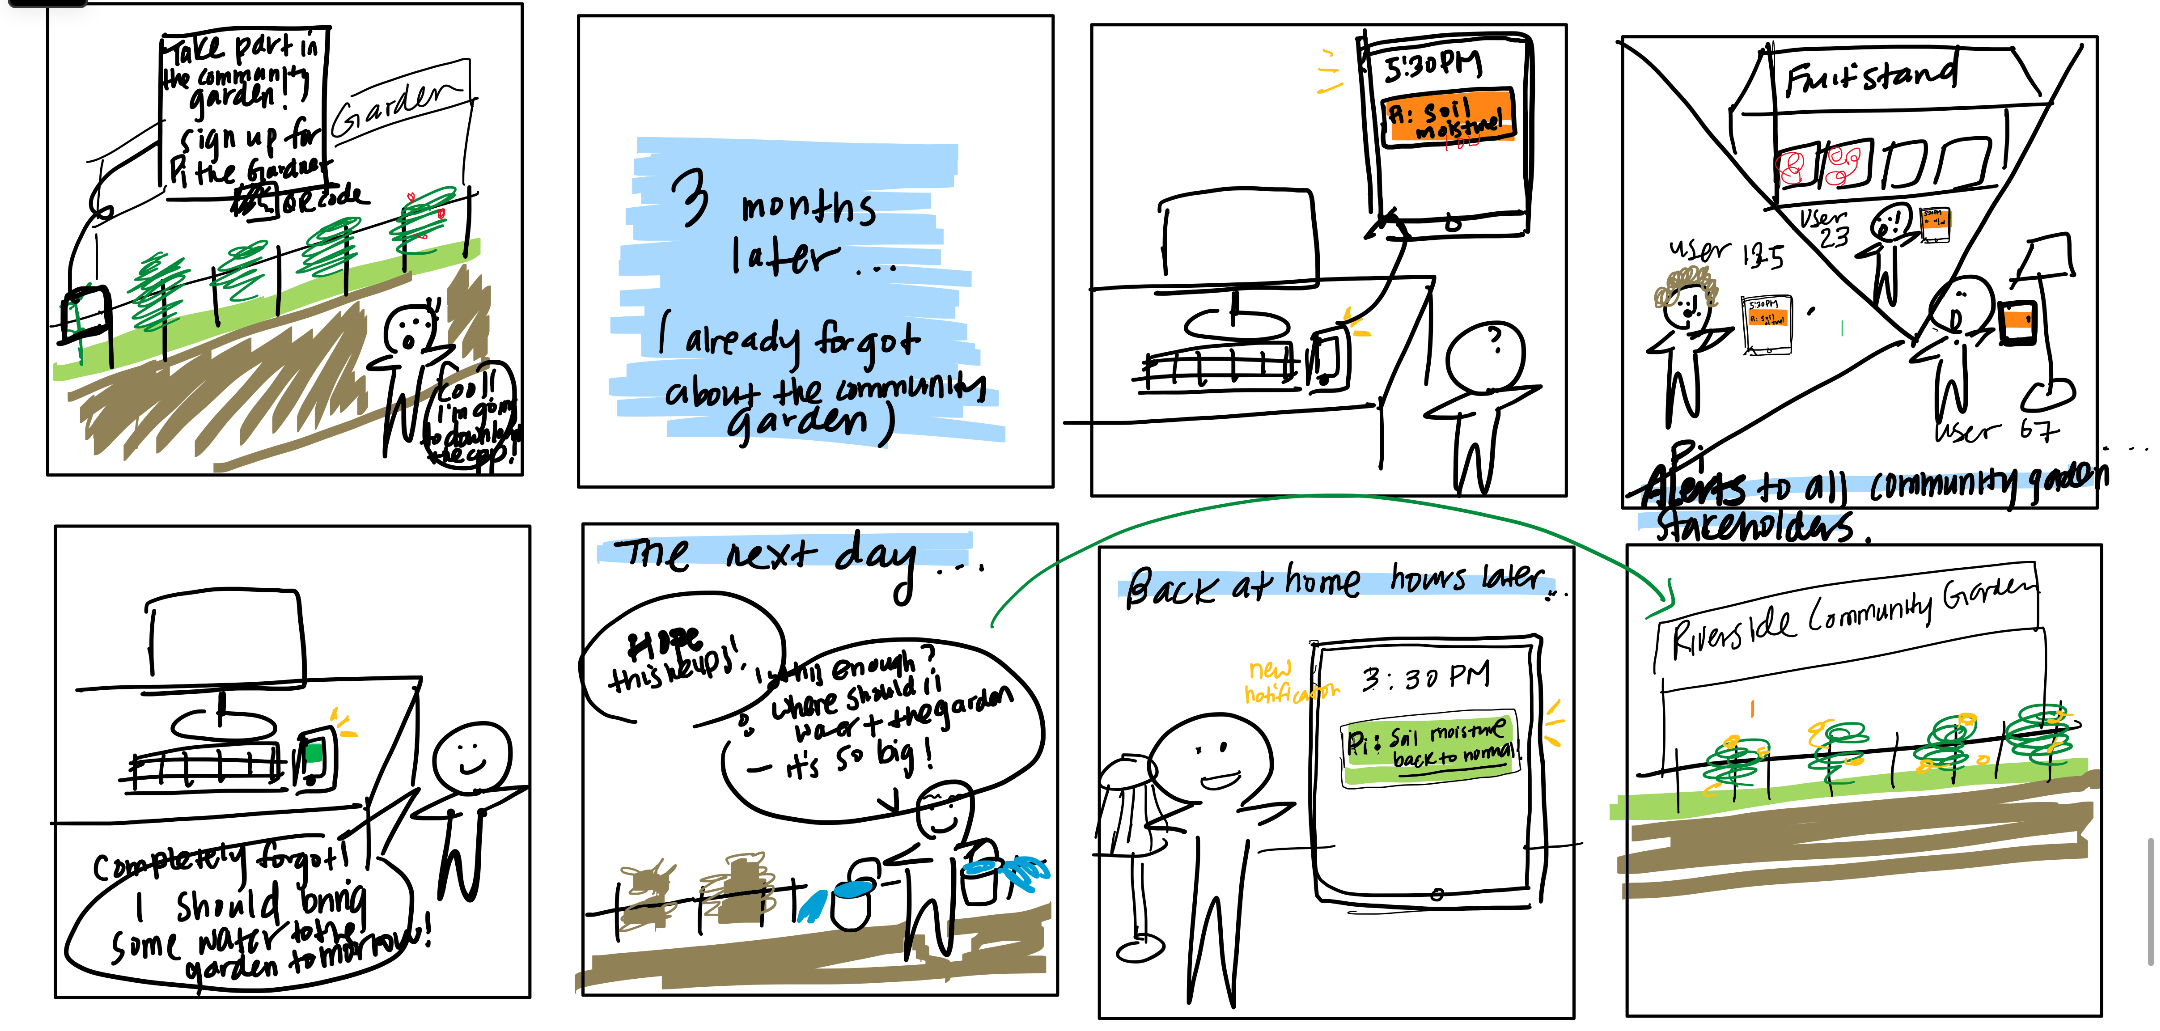 Take part in
the community
garden!
sign up for
Pi the Gardner
QR code
Garden
Cool!
I'm going
to download
the app!
3 months
later...
(already forgot
about the community
garden)
5:30PM
Pi: Soil
moisture!
Fruit stand
user
23
user 125
5:30PM
Pi: Soil
user 67
Pi
Alerts to all community garden
stakeholders.
...
Completely forgot!
I should bring
some water to the
garden tomorrow!
The next day...
Hope
this helps!
Is this enough?
Where should i
water the garden
— it's so big!
Back at home hours later...
new
notification
3:30 PM
Pi: Soil moisture
back to normal
Riverside Community Garden